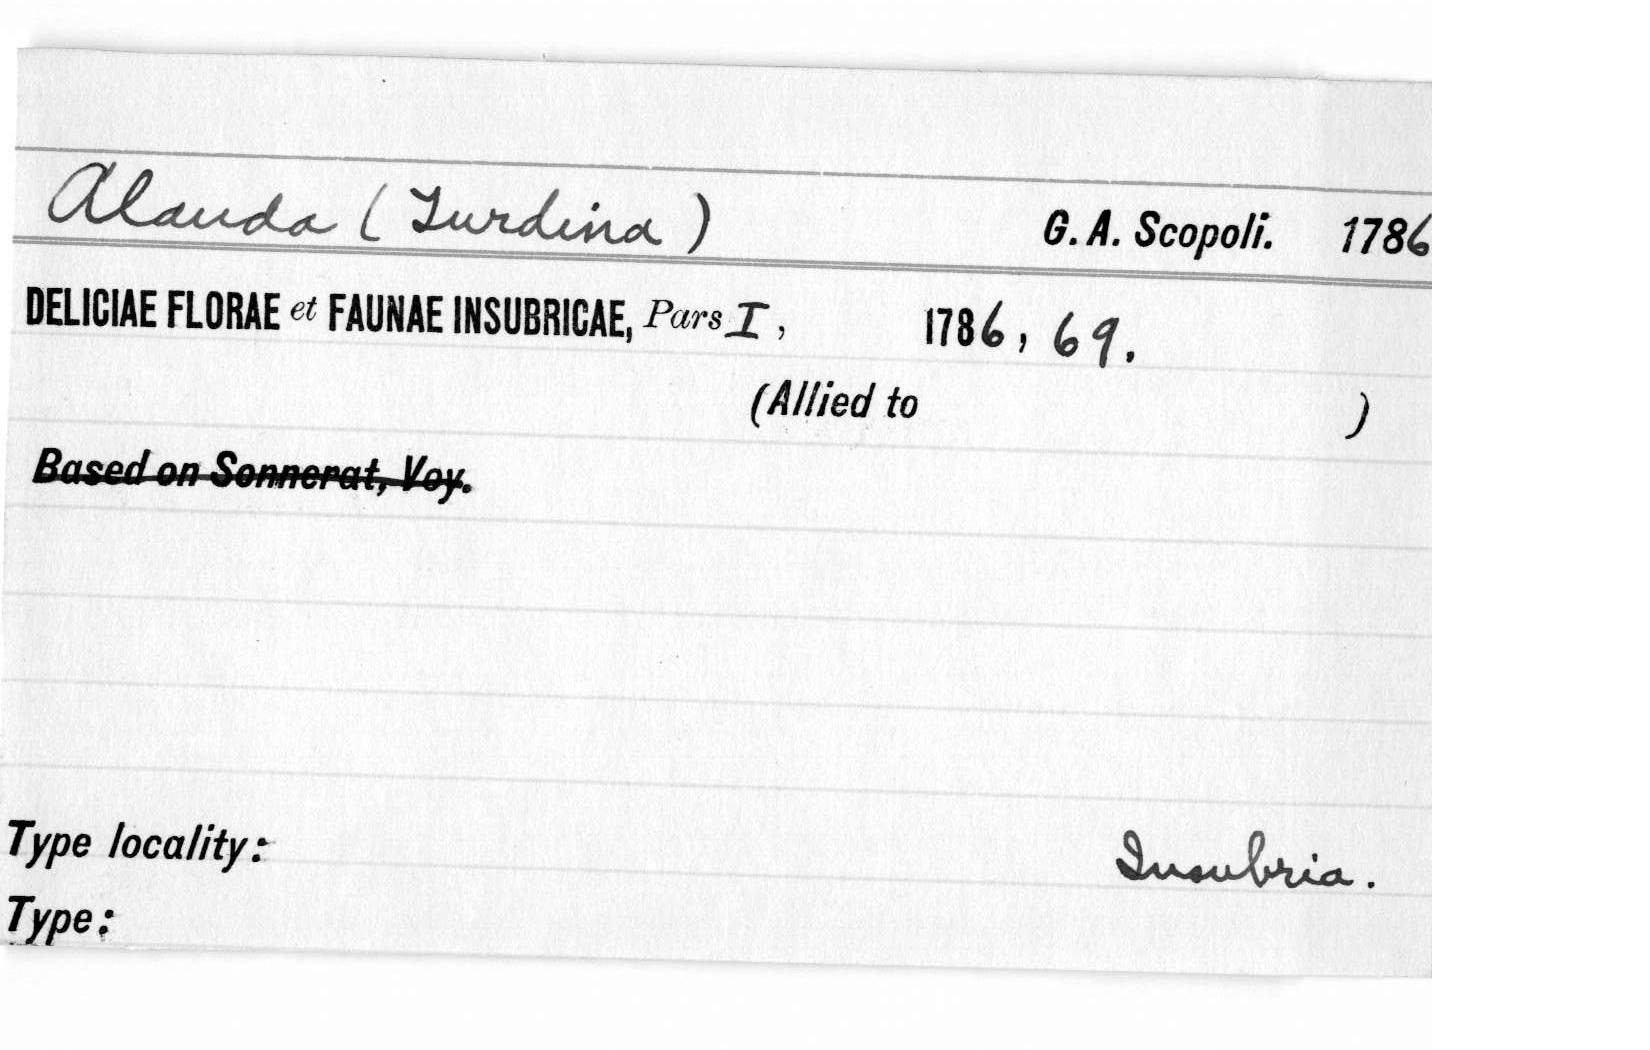 Alauda (Turdina) G. A. Scopoli. 1786
DELICIAE FLORAE et FAUNAE INSUBRICAE, Pars I, 1786, 69.
(Allied to )
Based on Sonnerat, Voy.
Type locality: Insubria.
Type: